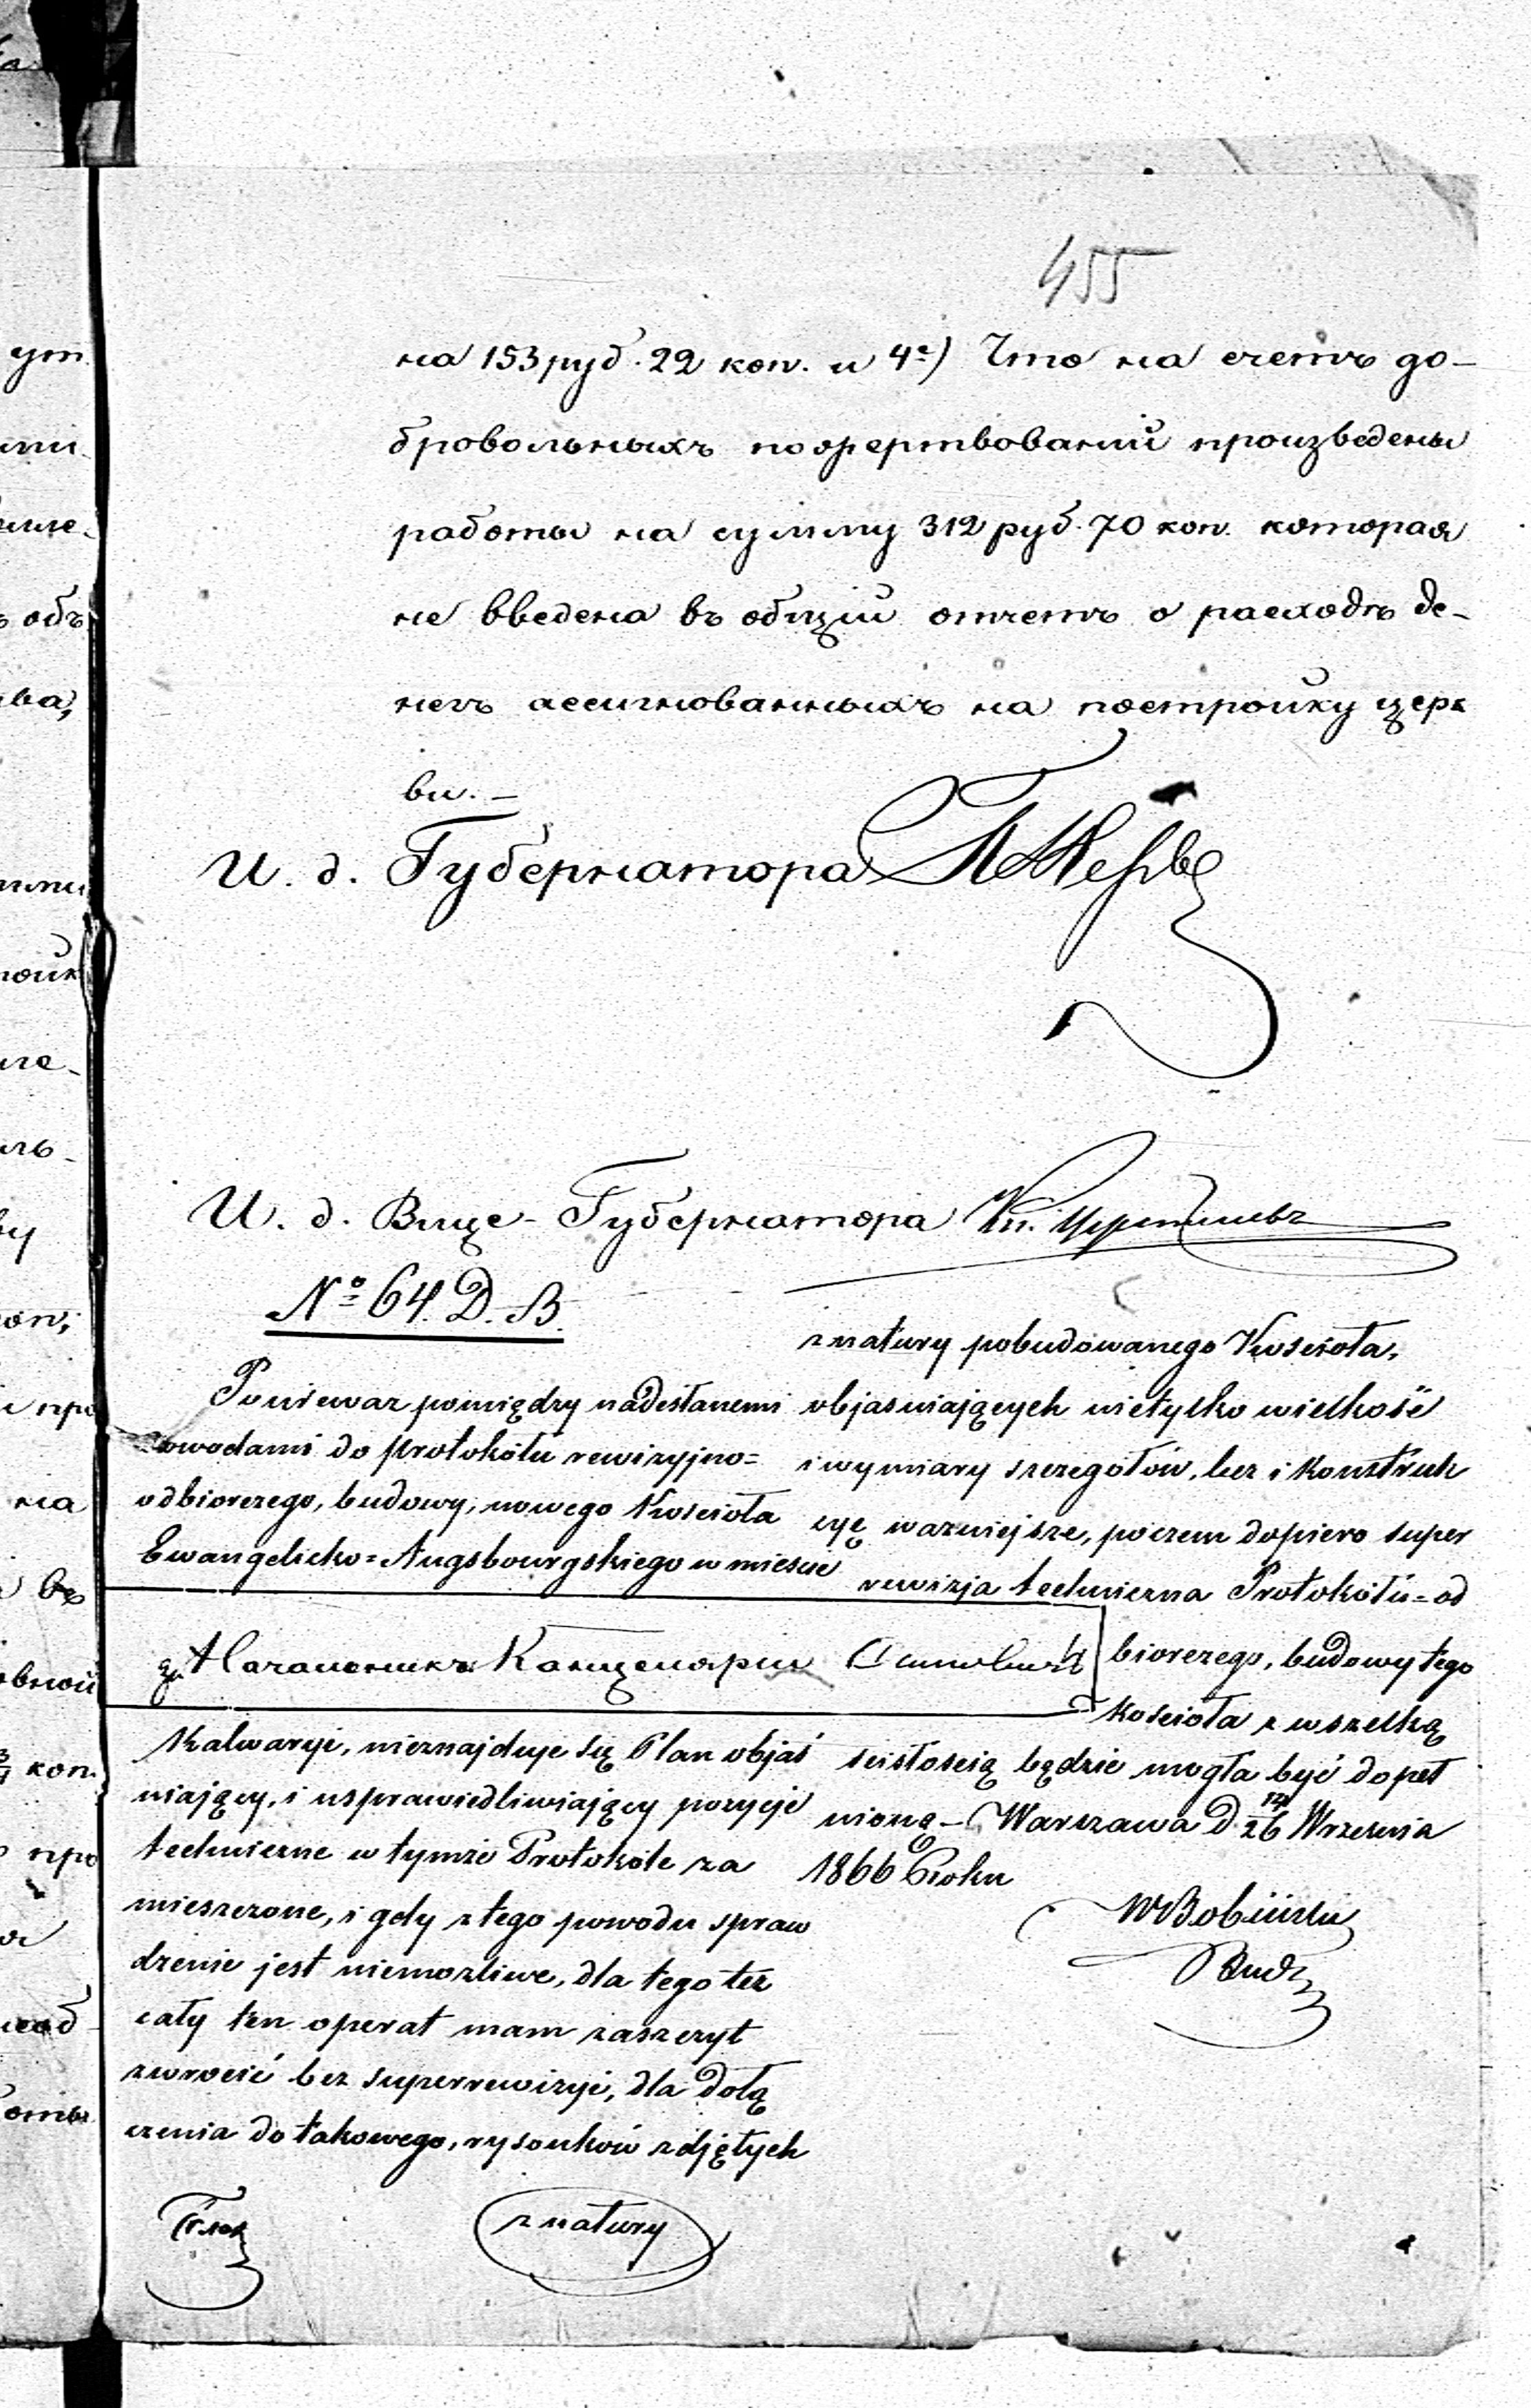 455
на 153 руб. 22 коп. и 4е) Что на счетъ до-
бровольныхъ пожертвованій произведены
работы на сумму 312 руб. 70 коп. которая
не введена въ общій отчетъ о расходѣ де-
негъ ассигнованныхъ на постройку церк
ви.-
И. д. Губернатора
И. д. Вице-Губернатора Кн.
№ 64. D. B.
Poniewaz pomiędzy nadesłanemi
dowodami do protokółu rewizyjno=
odbiorczego, budowy, nowego Kościoła
Ewangelicko=Augsbourgskiego w mieście
Начальникъ Канцеляріи
Kalwaryi, nieznajduje się Plan objaś
niający, i usprawiedliwiający pozycje
techniczne w tymże Protokóle za
mieszczone, i gdy z tego powodu spraw
dzenie jest niemozliwe, dla tego też
cały ten operat mam zaszczyt
zwrócić bez superrewizyi, dla dołą
czenia do takowego, rysonków zdjętych
z natury
z natury pobudowanego Kościoła,
objasniających nietylko wielkość
i wymiary szczegołów, lecz i konstruk
cyę wazniejsze, poczem dopiero super
rewizja techniczna Protokółu=od
biorczego, budowy tego
Kościoła z wszelką
scisłością będzie mogła być dopeł
nioną - Warszawa D. 14/26 Wrzesnia
1866 Roku
Bud.
ут
объ
ва,
коп.
на
въ
коп.
про